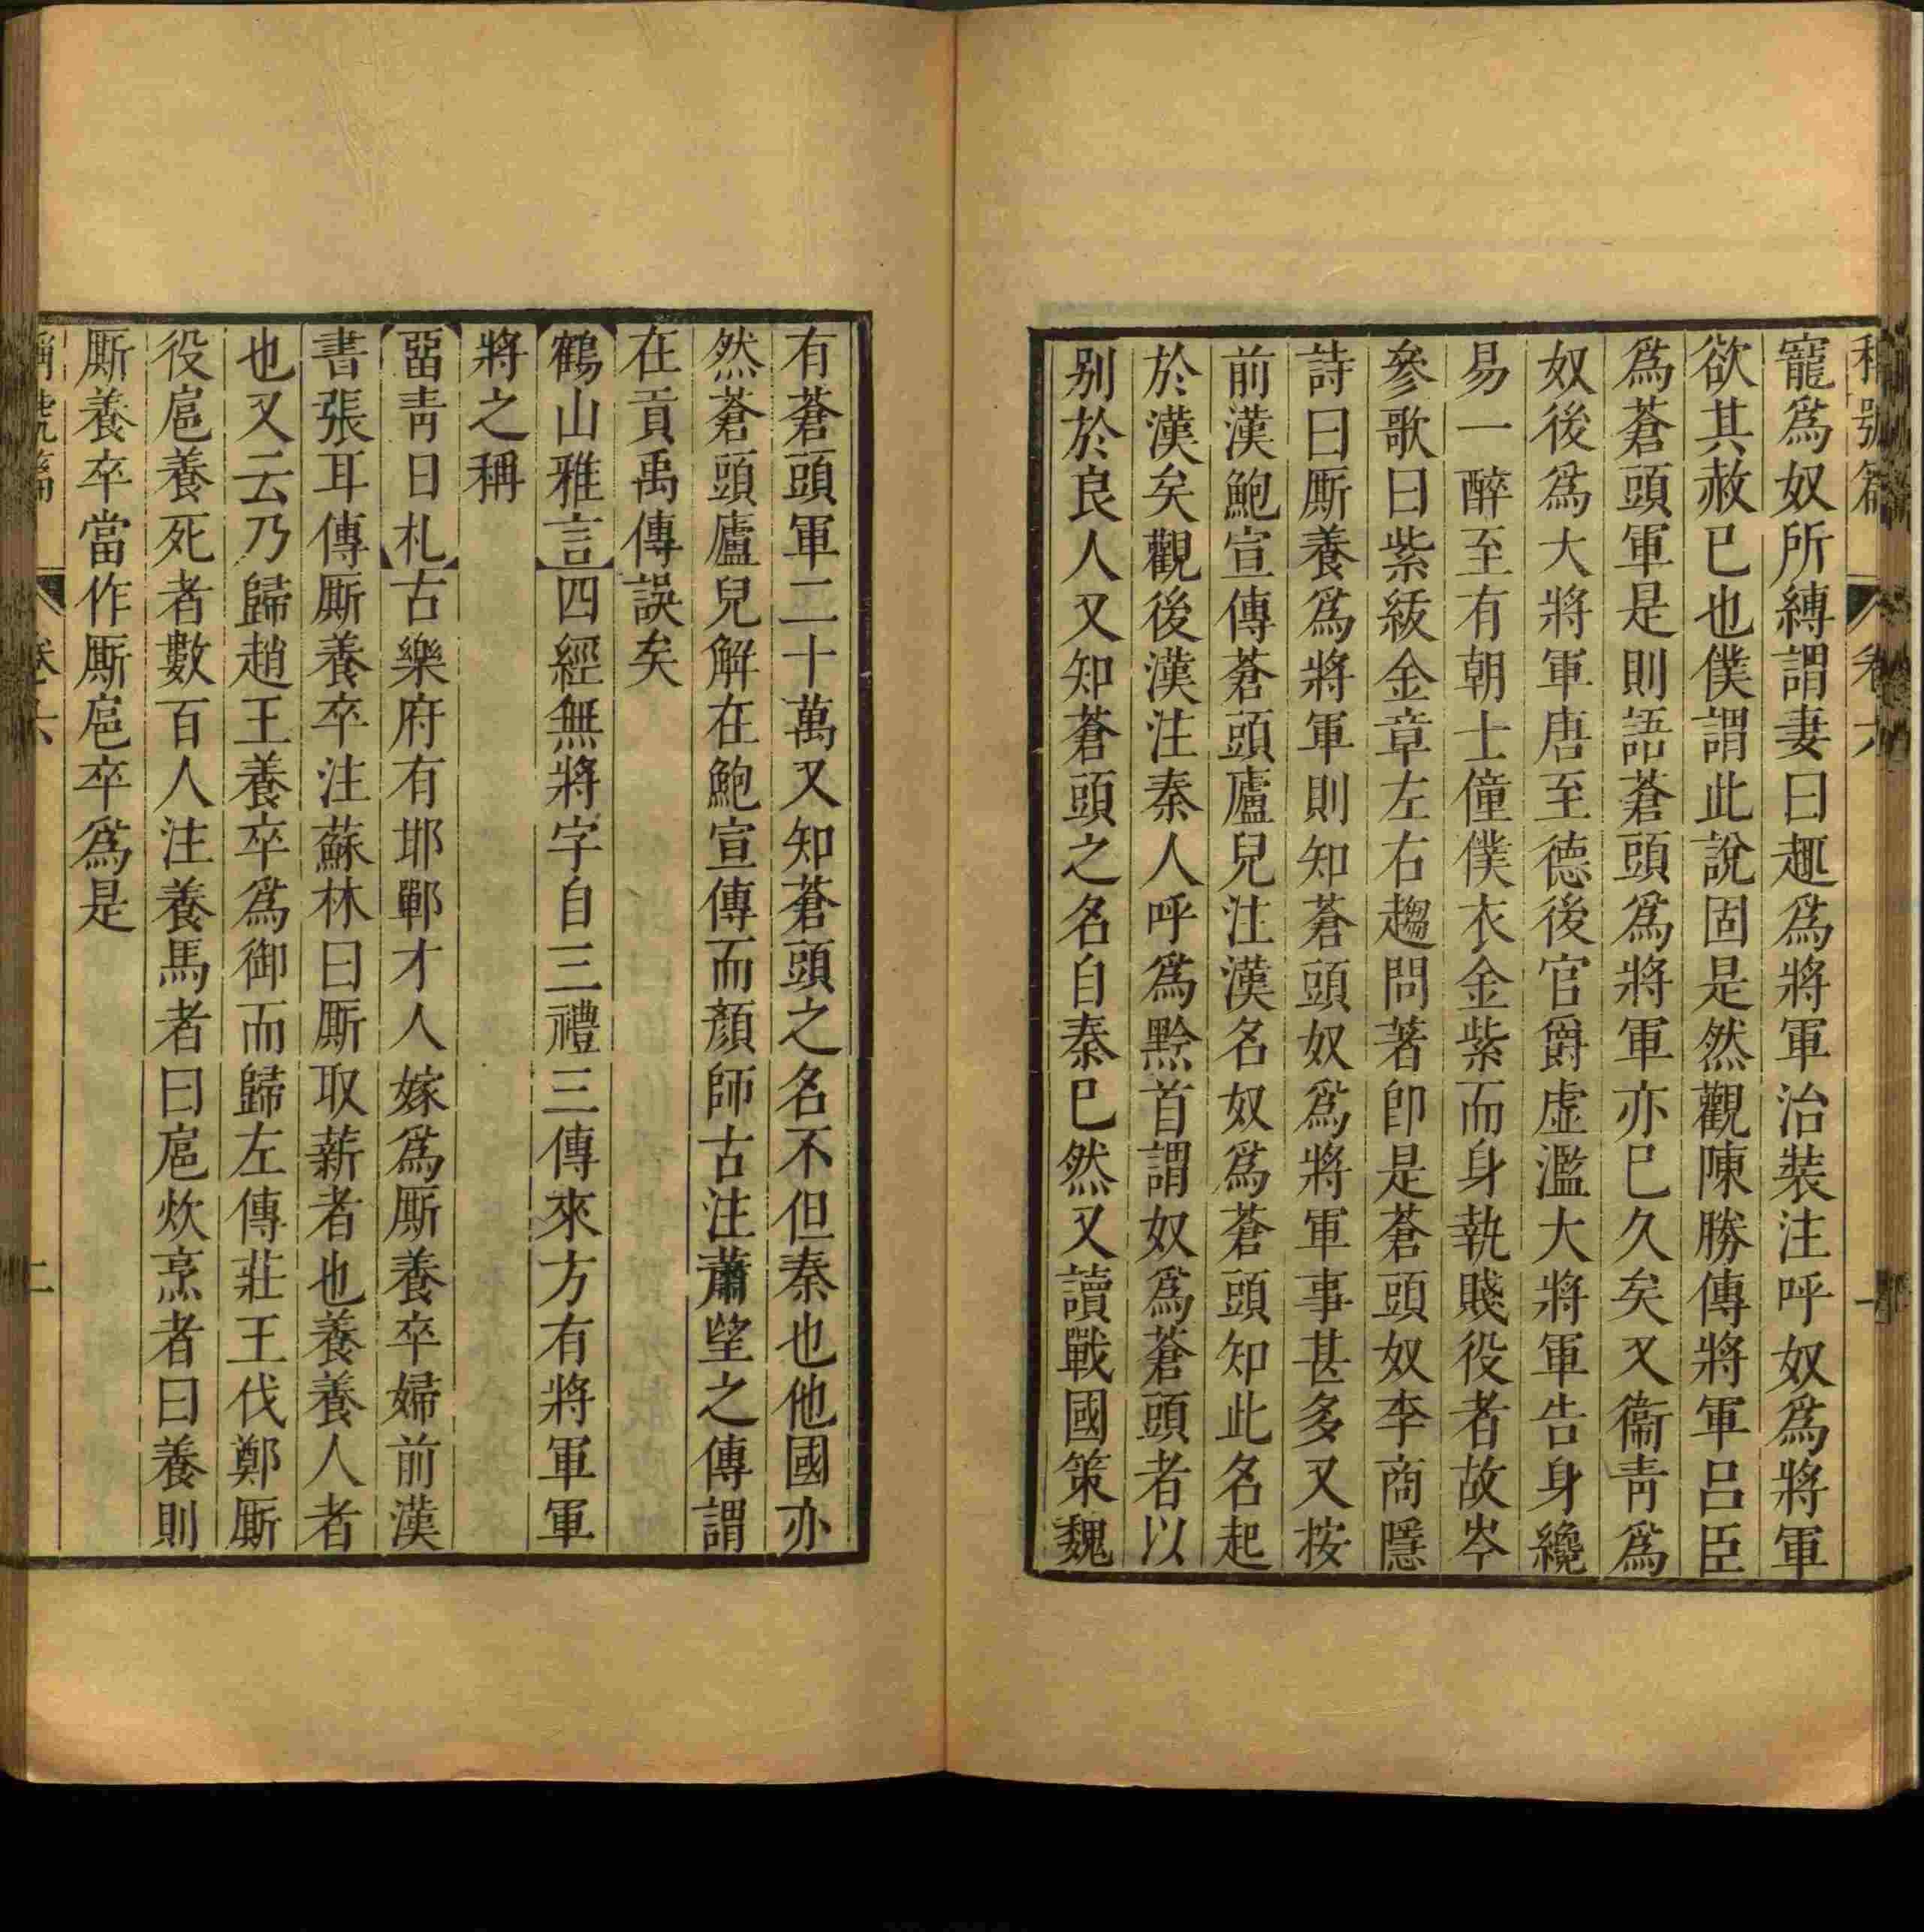 稱號篇 卷六 一
寵爲奴所縛謂妻曰趣爲將軍治裝注呼奴爲將軍
欲其赦已也僕謂此說固是然觀陳勝傳將軍呂臣
爲蒼頭軍是則語蒼頭爲將軍亦巳久矣又衞青爲
奴後爲大將軍唐至德後官爵虛濫大將軍告身纔
易一醉至有朝士僮僕衣金紫而身執賤役者故岑
參歌曰紫紱金章左右趨問著卽是蒼頭奴李商隱
詩曰厮養爲將軍則知蒼頭奴爲將軍事甚多又按
前漢鮑宣傳蒼頭廬兒注漢名奴爲蒼頭知此名起
於漢矣觀後漢注秦人呼爲黔首謂奴爲蒼頭者以
别於良人又知蒼頭之名自秦巳然又讀戰國策魏
有蒼頭軍二十萬又知蒼頭之名不但秦也他國亦
然蒼頭廬兒解在鮑宣傳而顏師古注蕭望之傳謂
在貢禹傳誤矣
鶴山雅言四經無將字自三禮三傳來方有將軍軍
將之稱
畱青日札古樂府有邯鄲才人嫁爲厮養卒婦前漢
書張耳傳厮養卒注蘇林曰厮取薪者也養養人者
也又云乃歸趙王養卒爲御而歸左傳莊王伐鄭厮
役扈養死者數百人注養馬者曰扈炊烹者曰養則
厮養卒當作厮扈卒爲是
稱號篇 卷六 二